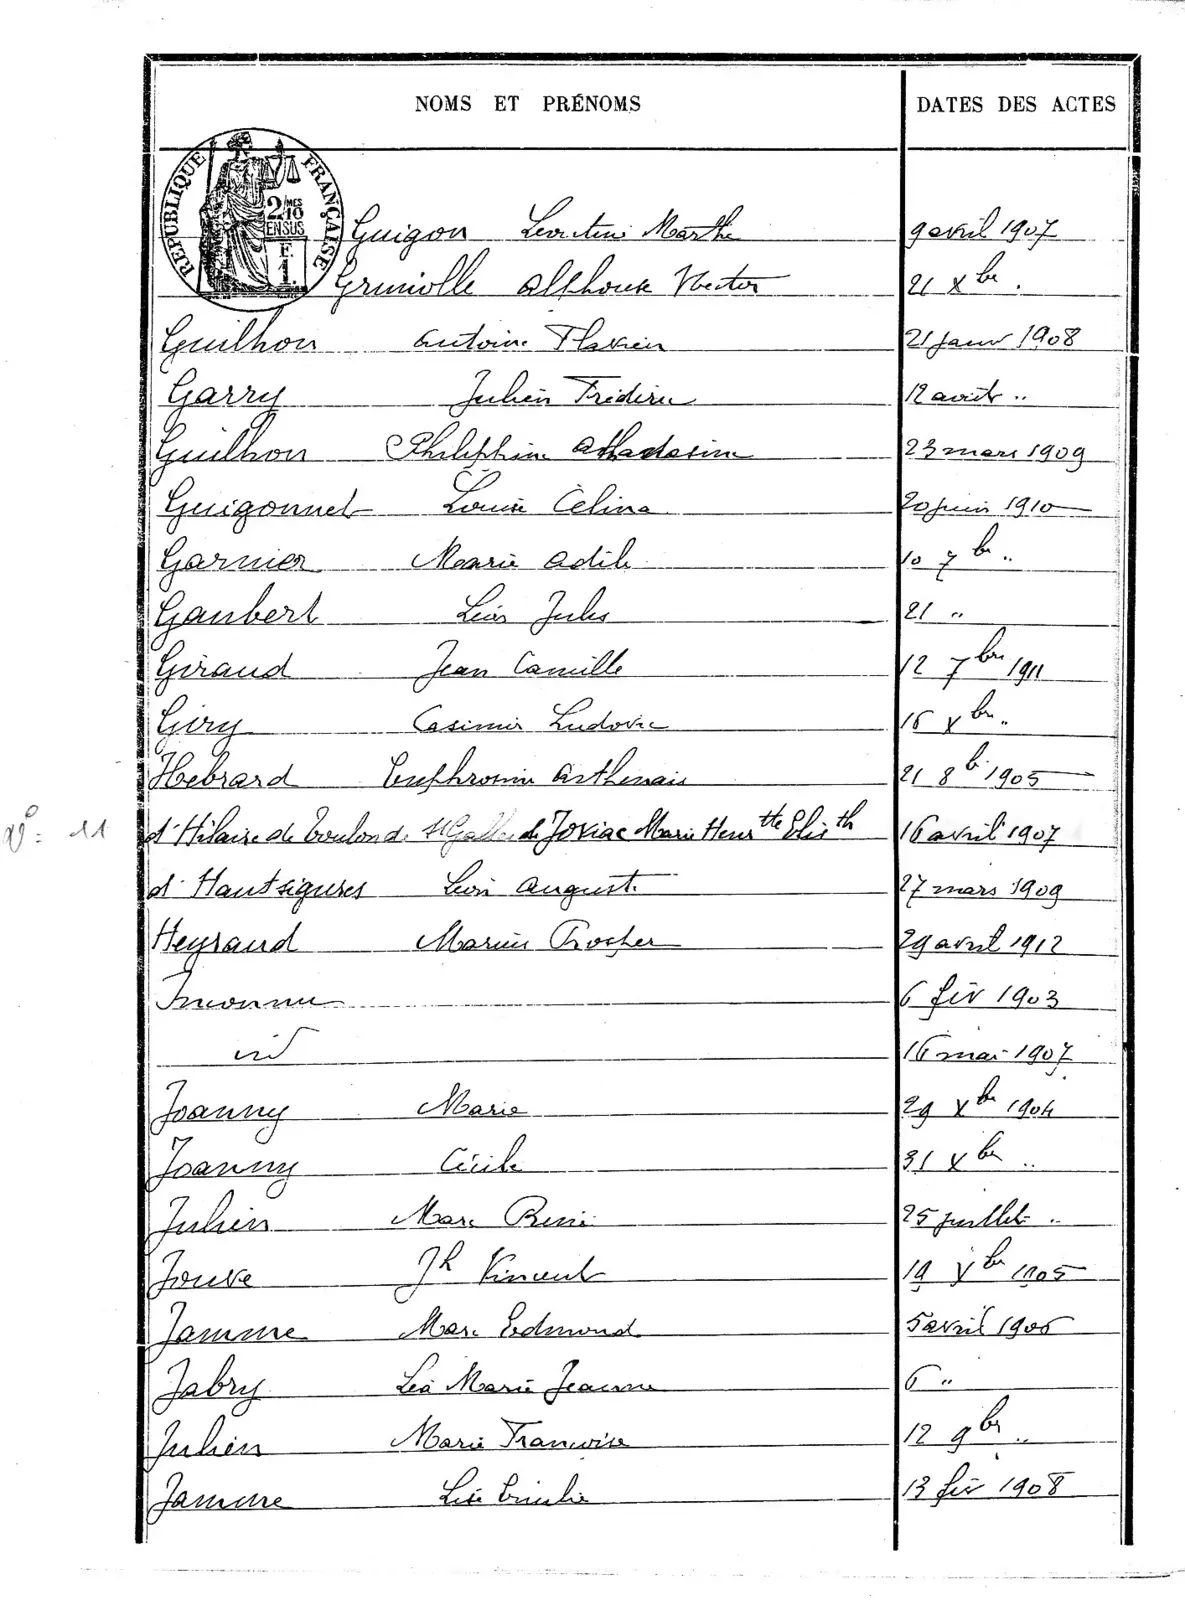 NOMS ET PRÉNOMS DATES DES ACTES
RÉPUBLIQUE FRANÇAISE
2/10 MES
EN SUS
F.
1.
Guigon Marthe 9 avril 1907
Alphonse Hector 21 Xbre .
Guilhon Antoine Flavien 21 janv 1908
Garry Julien Fréderic 12 août ..
Guilhon Philippine Athanasine 23 mars 1909
Guigonnet Louise Célina 20 juin 1910
Garnier Marie Adile 10 7bre ..
Gaubert Léon Jules 21 ..
Giraud Jean Camille 12 7bre 1911
Giry Casimir Ludovic 16 Xbre ..
Hebrard Euphrosine Arthenais 21 8bre 1905
N°: 11 d'Hilaire de Toulon de St Galle de Joviac Marie Henrtte Elisth 16 avril 1907
d'Hautsigures Léon Auguste 27 mars 1909
Heyraud Marius Rocher 29 avril 1912
Inconnu 6 fév 1903
id 16 mai 1907
Joanny Marie 29 Xbre 1904
Joanny Cécile 31 Xbre ..
Julien Marc René 25 juillet ..
Jouve Jh Vincent 19 Xbre 1905
Jamme Marc Edmond 5 avril 1906
Jabry Léa Marie Jeanne 6 ..
Julien Marie Francoise 12 9bre ..
Jamme Emilie 13 fév 1908